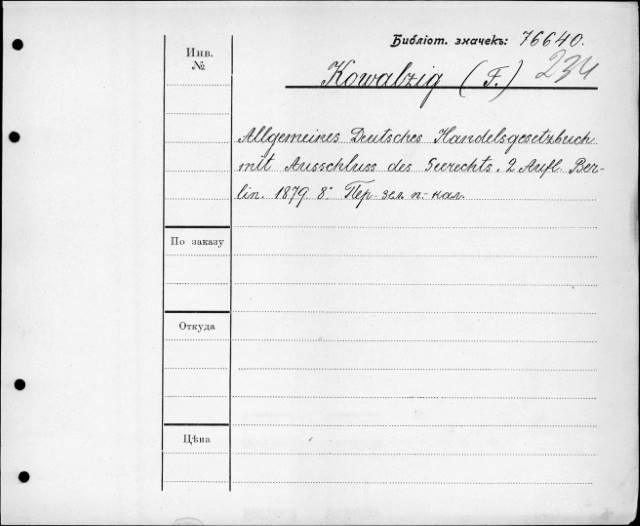 Библіот. значекъ: 76640.
Инв. №
Kowalzig (F.) 234
Allgemeines Deutsches Handelsgesetzbuch
mit Ausschluss des Seerechts. 2 Aufl. Ber-
lin. 1879. 8º. Пер. зел. п.-кал.
По заказу
Откуда
Цѣна